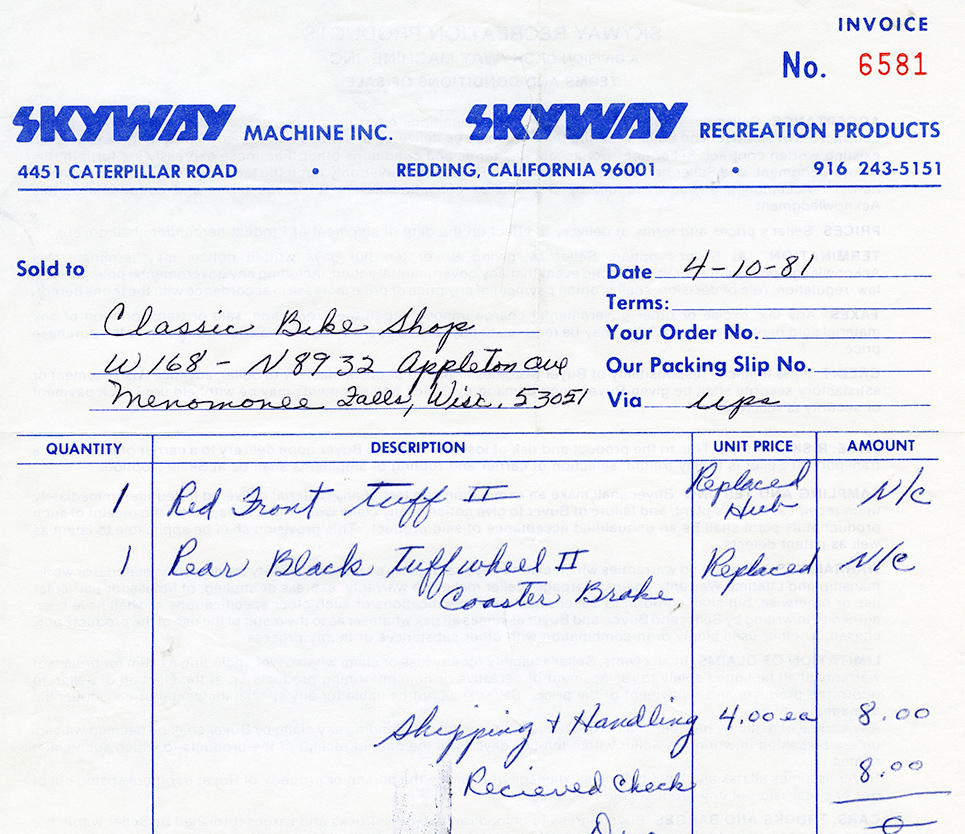 INVOICE
No. 6581
SKYWAY MACHINE INC. SKYWAY RECREATION PRODUCTS
4451 CATERPILLAR ROAD • REDDING, CALIFORNIA 96001 • 916 243-5151
Sold to
Date 4-10-81
Terms:
Classic Bike Shop
Your Order No.
W168 - N8932 Appleton Ave
Our Packing Slip No.
Menomonee Falls, Wisc. 53051
Via ups
QUANTITY DESCRIPTION UNIT PRICE AMOUNT
1 Red Front Tuff II Replaced Hub N/C
1 Rear Black Tuff wheel II Replaced N/C
Coaster Brake
Shipping + Handling 4.00 ea 8.00
Recieved Check 8.00
0